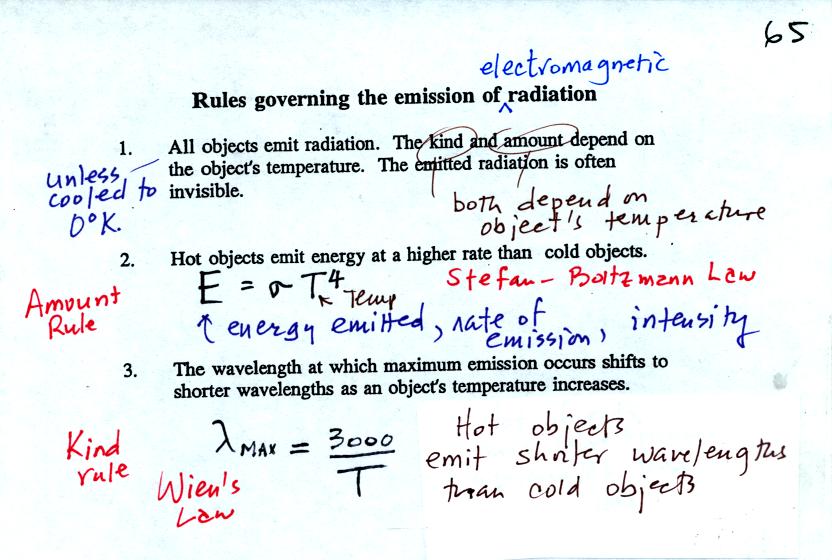 65
electromagnetic
Rules governing the emission of ^ radiation
1. All objects emit radiation. The kind and amount depend on
the object's temperature. The emitted radiation is often
invisible.
unless
cooled to
0°K.
both depend on
object's temperature
2. Hot objects emit energy at a higher rate than cold objects.
Amount
Rule
E = σ T⁴
Temp
Stefan - Boltzmann Law
↑ energy emitted, rate of
emission, intensity
3. The wavelength at which maximum emission occurs shifts to
shorter wavelengths as an object's temperature increases.
Kind
rule
λ MAX = 3000 / T
Wien's
Law
Hot objects
emit shorter wavelengths
than cold objects